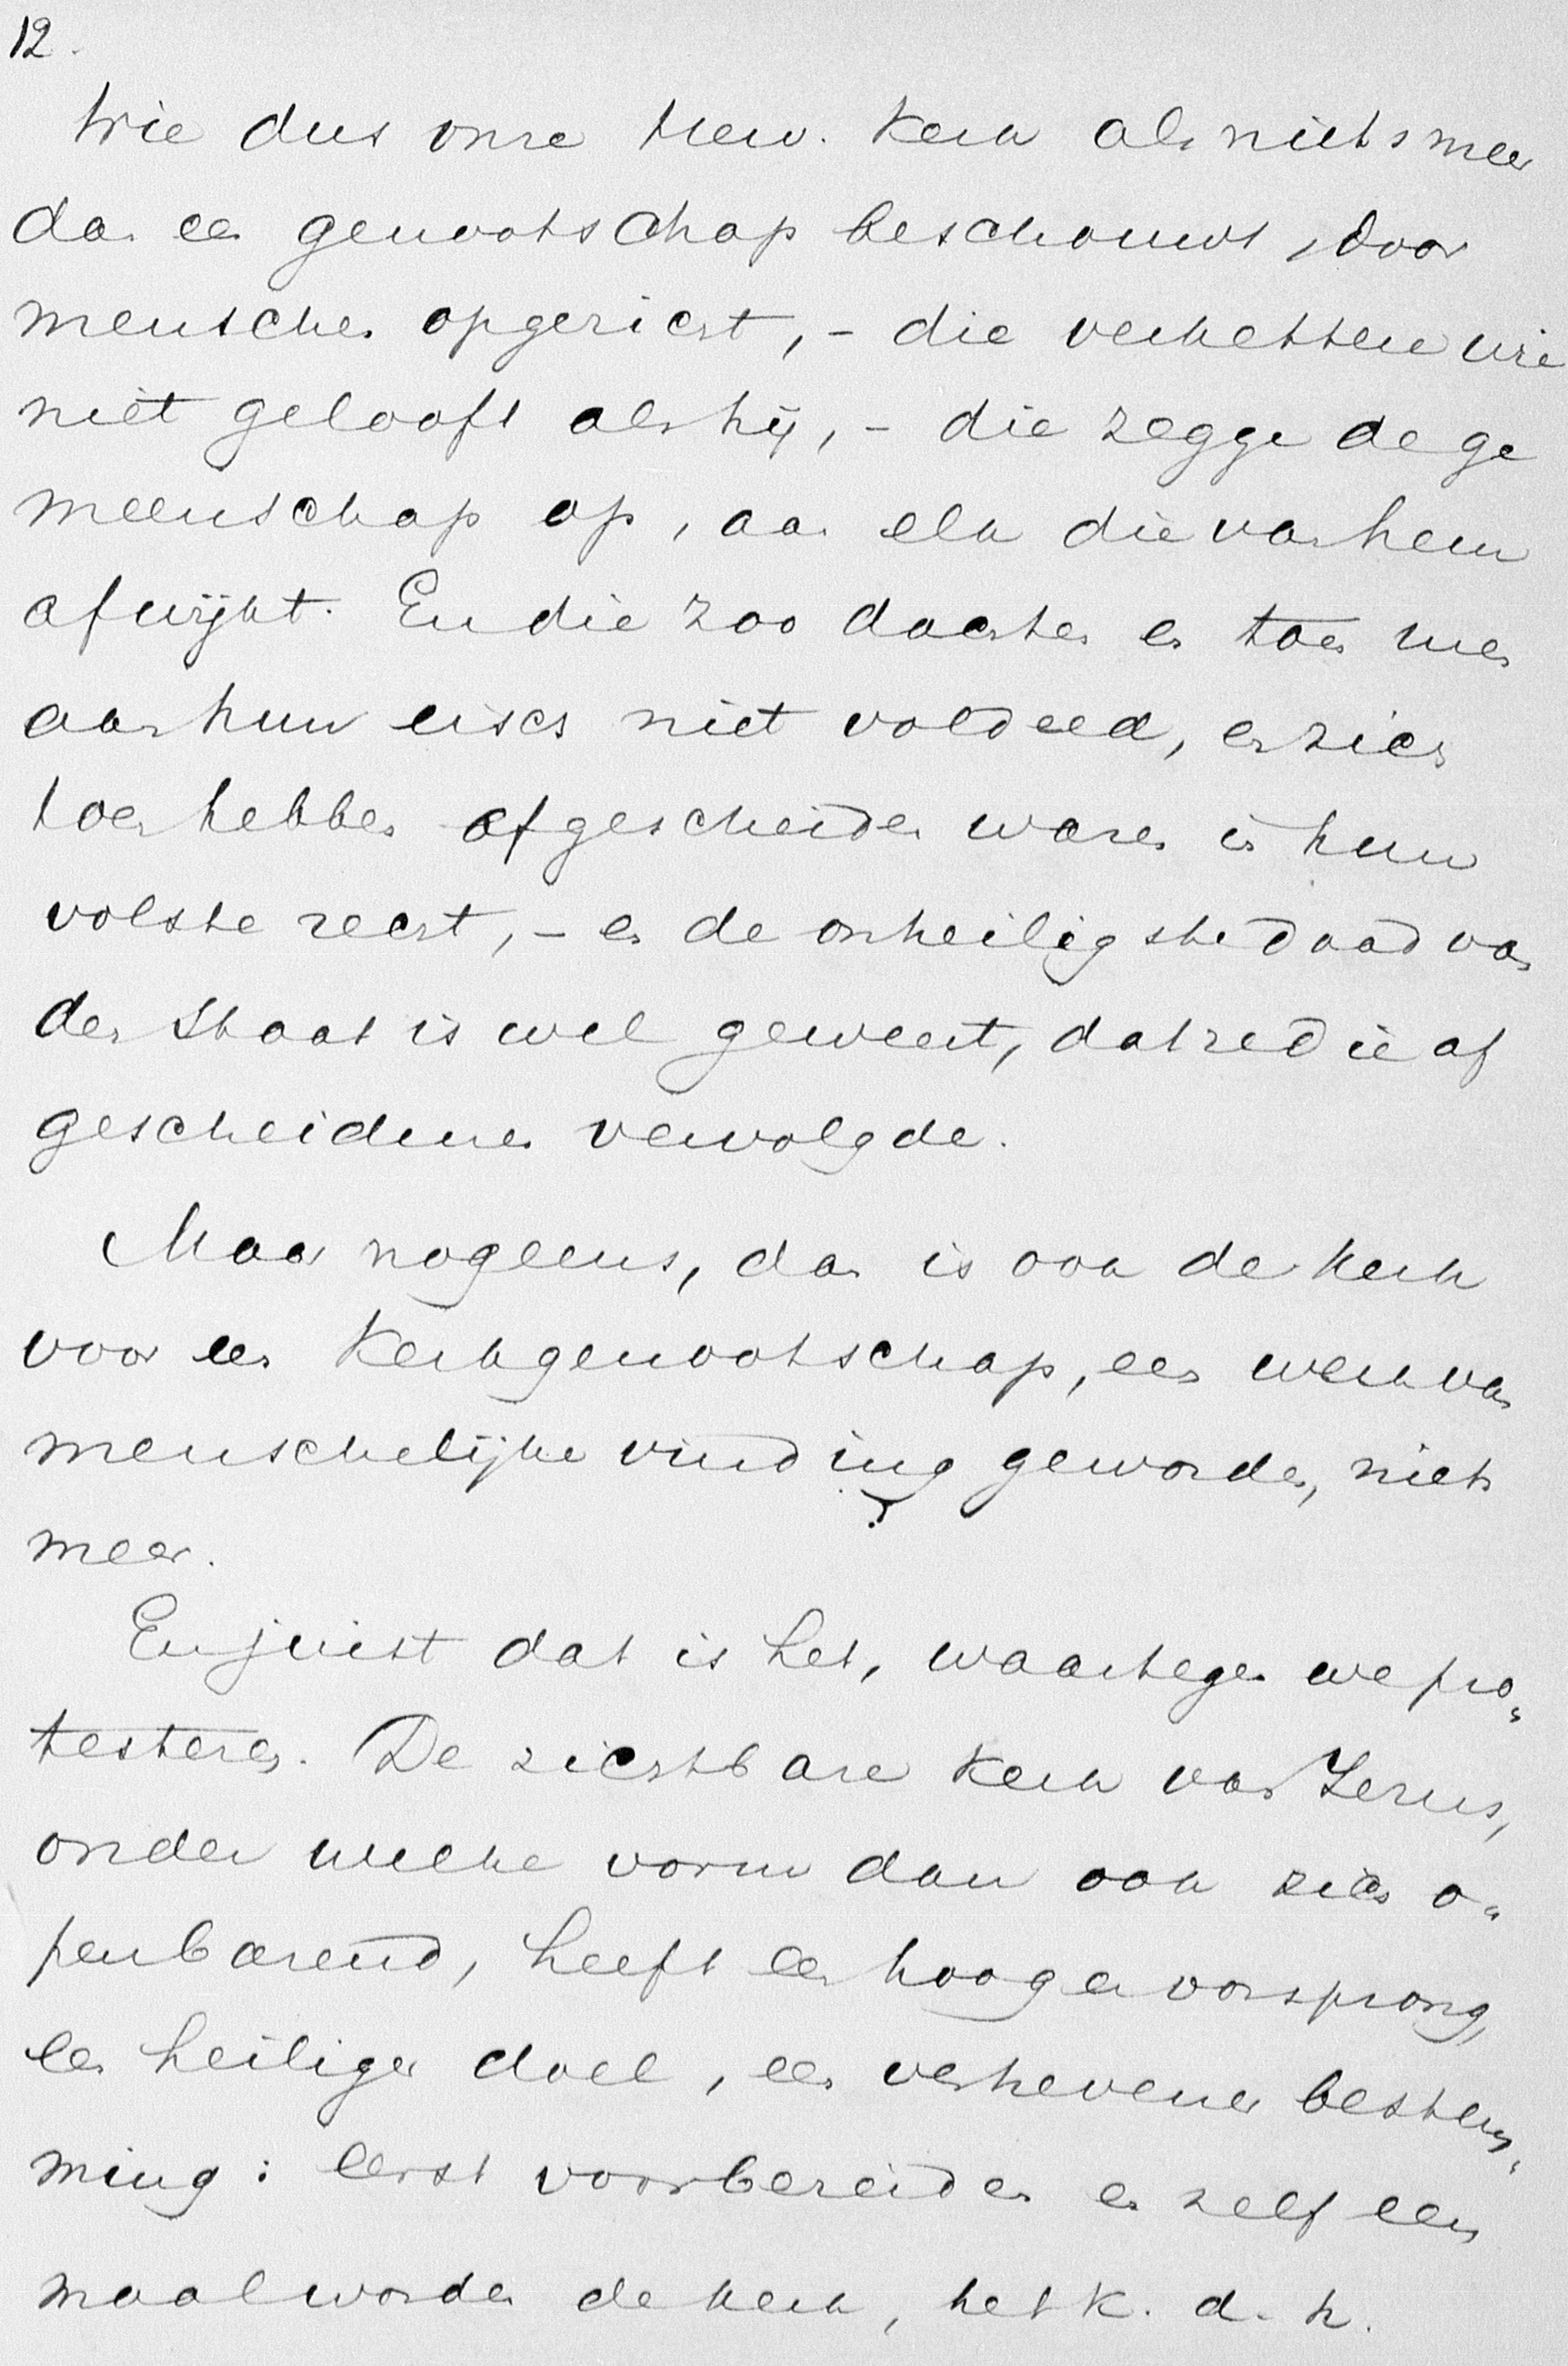 12.
Wie dus onze Herv. Kerk als niets meer
dan een genootschap beschouwt, door
menschen opgericht, - die verkettere wie
niet gelooft als hij, - die zegge de ge
meenschap op, aan elk die van hem
afwijkt. En die zoo dachten en toen men
aan hun eisch niet voldeed, en zich
toen hebben afgescheiden waren in hun
volste recht, - en de onheiligste daad van
den Staat is wel geweest, dat ze die af
gescheidenen vervolgde.
Maar nogeens, dan is ook de kerk
voor een Kerkgenootschap, een werk van
menschelijke vinding geworden, niets
meer.
En juist dat is het, waartegen we pro„
testeren. De zichtbare Kerk van Jezus,
onder welke vorm dan ook zich o„
penbarend, heeft een hooger oorsprong,
een heiliger doel, een verhevener bestem„
ming: eerst voorbereiden en zelf een
maal worden de kerk, het K. d. h.